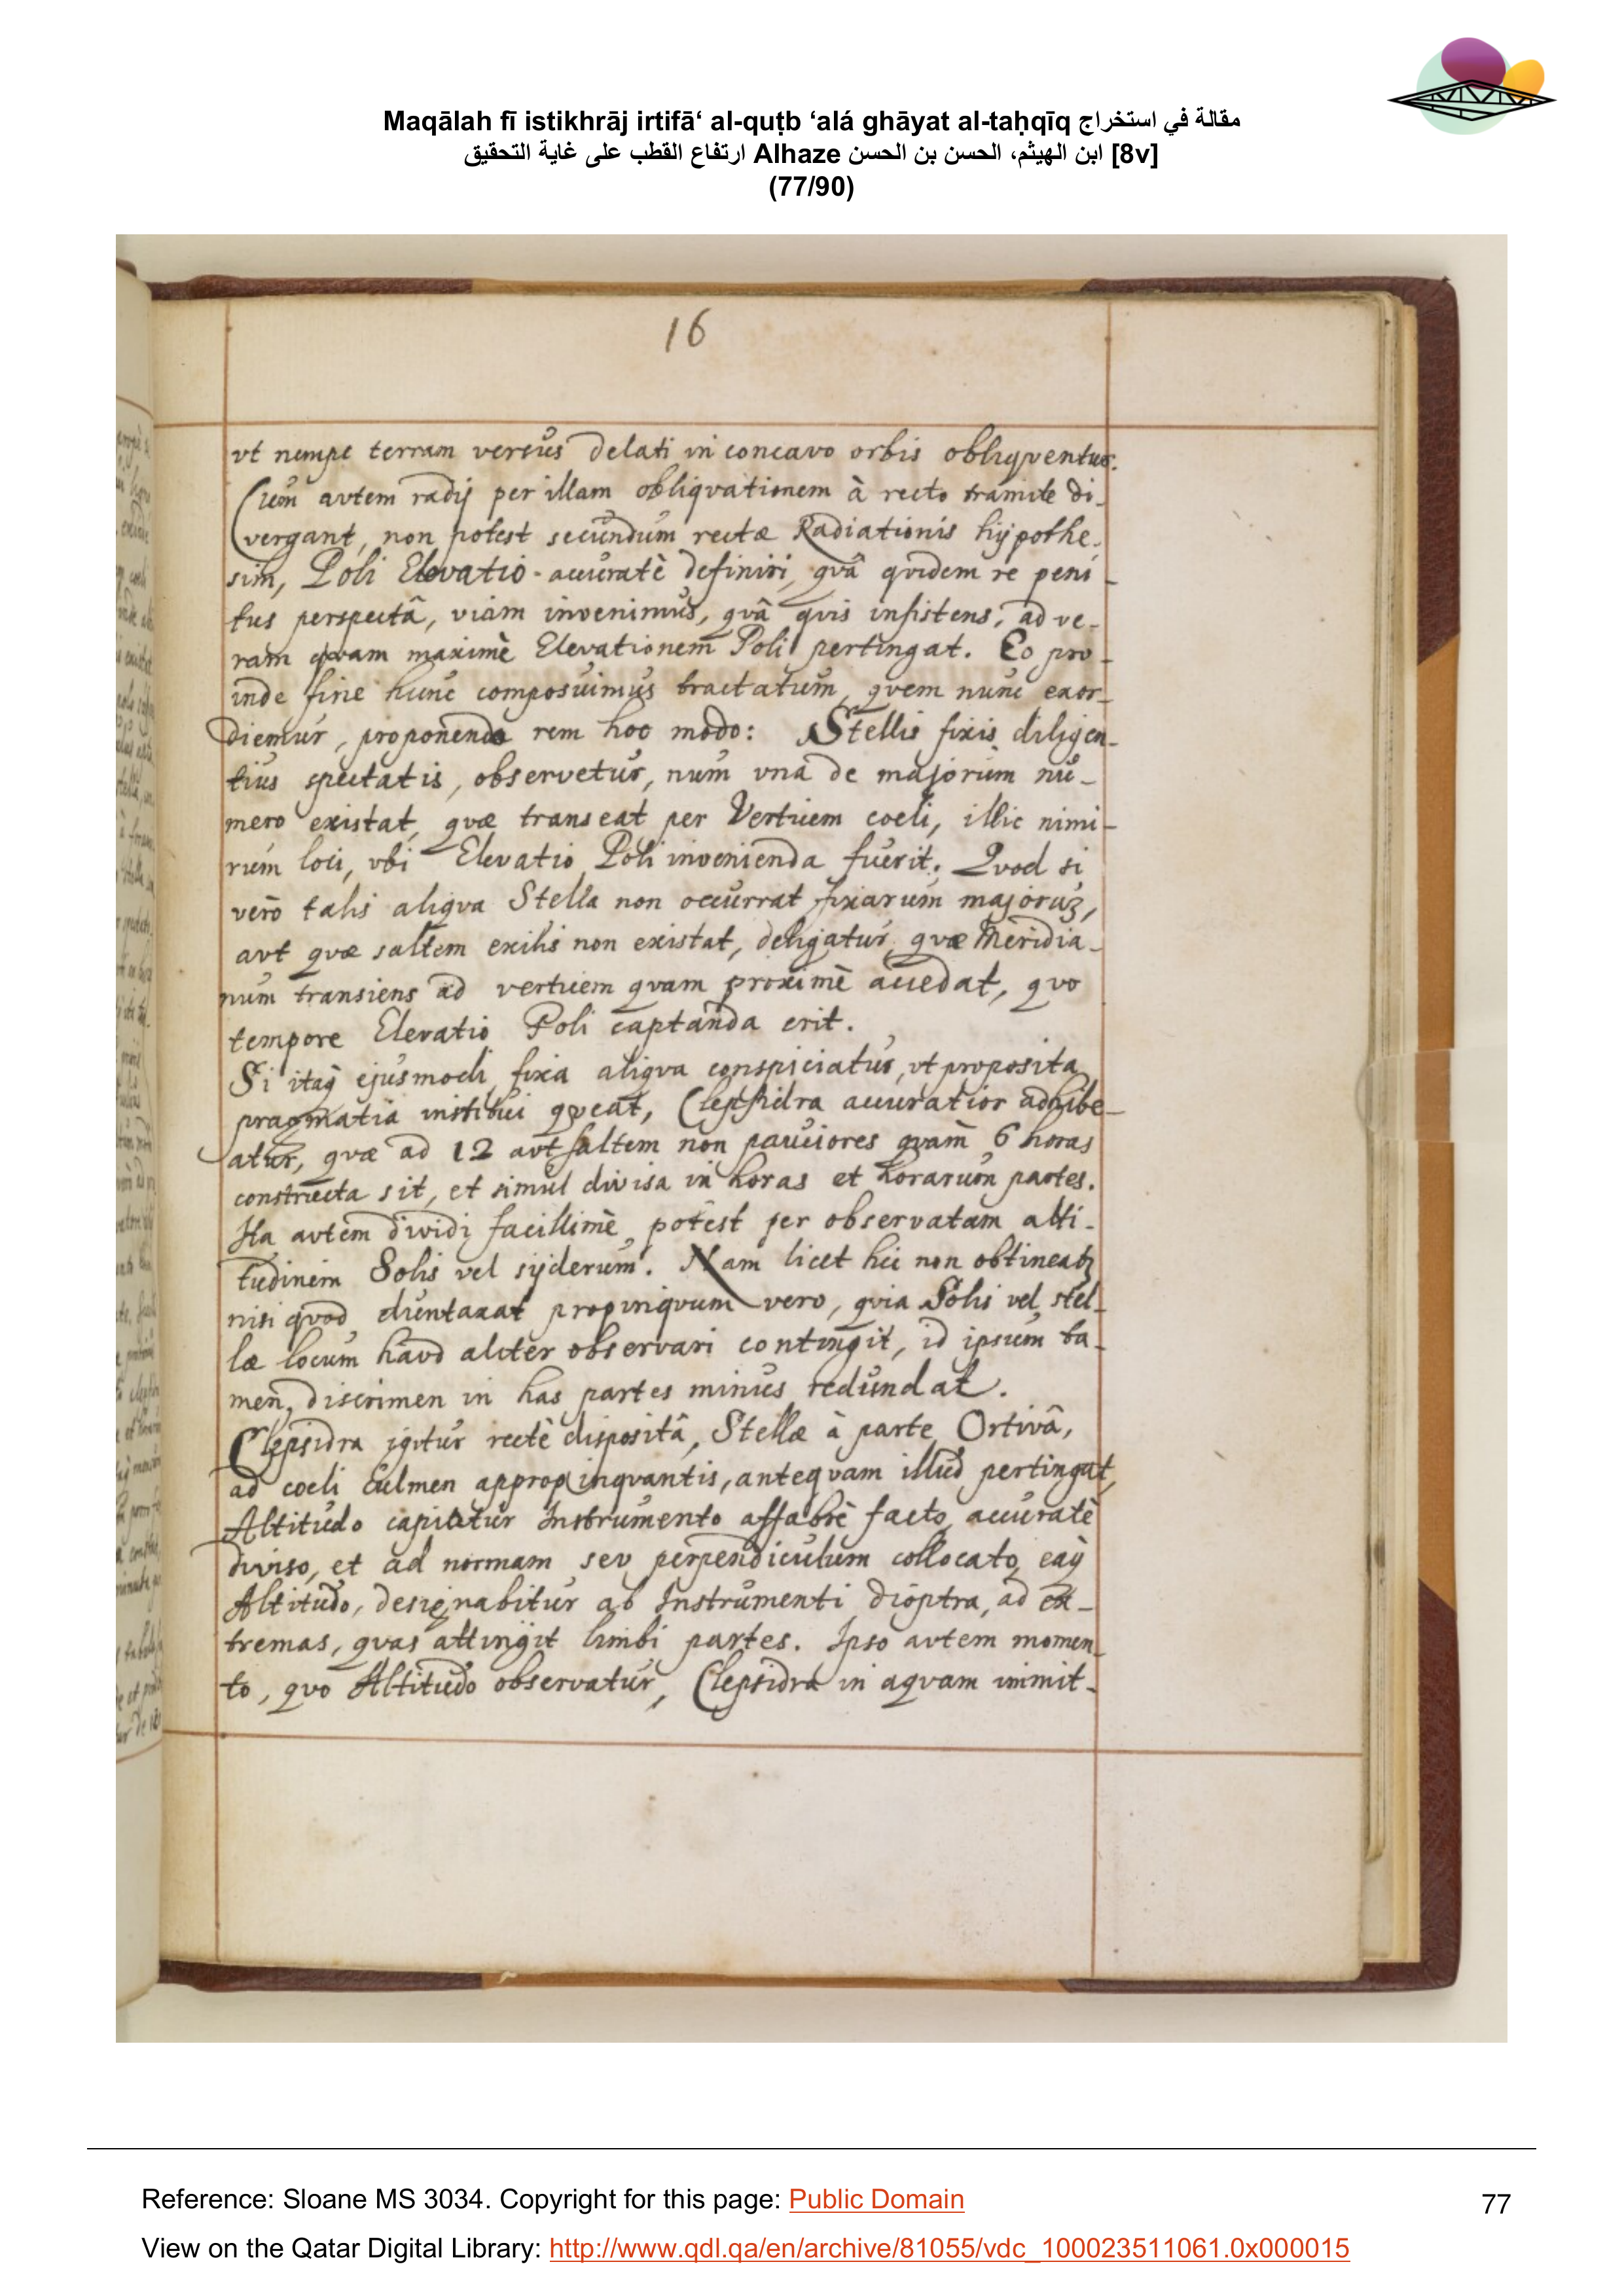 Maqālah fī istikhrāj irtifā‘ al-quṭb ‘alá ghāyat al-taḥqīq مقالة في استخراج
ارتفاع القطب على غاية التحقيق Alhaze ابن الهيثم، الحسن بن الحسن [8v]
(77/90)
16
vt nempe terram versus delati in concavo orbis obliqventur.
Cum avtem radij per illam obliqvationem à recto tramite di-
vergant, non potest secundum rectæ Radiationis hÿpothe-
sim, Poli Elevatio accuratè definiri, qvâ qvidem re peni-
tus perspectâ, viam invenimus, qvâ qvis insistens, ad ve-
ram qvam maximè Elevationem Poli pertingat. Eo pro-
inde fine hunc composuimus tractatum, qvem nunc exor-
diemur, proponendo rem hoc modo: Stellis fixis diligen-
tius spectatis, observetur, num vna de majorum nu-
mero existat, qvæ transeat per Verticem coeli, illic nimi-
rum loci, vbi Elevatio Poli invenienda fuerit. Qvod si
vero talis aliqva Stella non occurrat fixarum majorū,
avt qvæ saltem exilis non existat, deligatur, qvæ Meridia-
num transiens ad verticem qvam proximè accedat, qvo
tempore Elevatio Poli captanda erit.
Si itaq̃ ejusmodi fixa aliqva conspiciatur, vt proposita
pragmatia institui qveat, Clepsidra accuratior adhibe-
atur, qvæ ad 12 avt saltem non pauciores qvam 6 horas
constructa sit, et simul divisa in horas et horarum partes.
Ita avtem dividi facillimè potest per observatam alti-
tudinem Solis vel sÿderum. Nam licet hic non obtineatꝫ
nisi qvod duntaxat propinqvum vero, qvia Solis vel stel-
læ locum havd aliter observari contingit, id ipsum ta-
men discrimen in has partes minus redundat.
Clepsidra igitur rectè dispositâ, Stellæ à parte Ortivâ,
ad coeli culmen appropinqvantis, anteqvam illud pertingat,
Altitudo capiatur Instrumento affabrè facto, accuratè
diviso, et ad normam sev perpendiculum collocato, eaq̃
Altitudo, designabitur ab Instrumenti dioptra, ad ex-
tremas, qvas attingit limbi partes. Ipso avtem momen-
to, qvo Altitudo observatur, Clepsidra in aqvam immit-
Reference: Sloane MS 3034. Copyright for this page: Public Domain
77
View on the Qatar Digital Library: http://www.qdl.qa/en/archive/81055/vdc_100023511061.0x000015